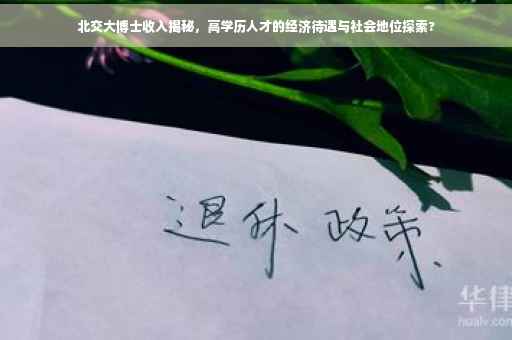 北交大博士收入揭秘，高学历人才的经济待遇与社会地位探索？
退休 政策
华律
hualv.com